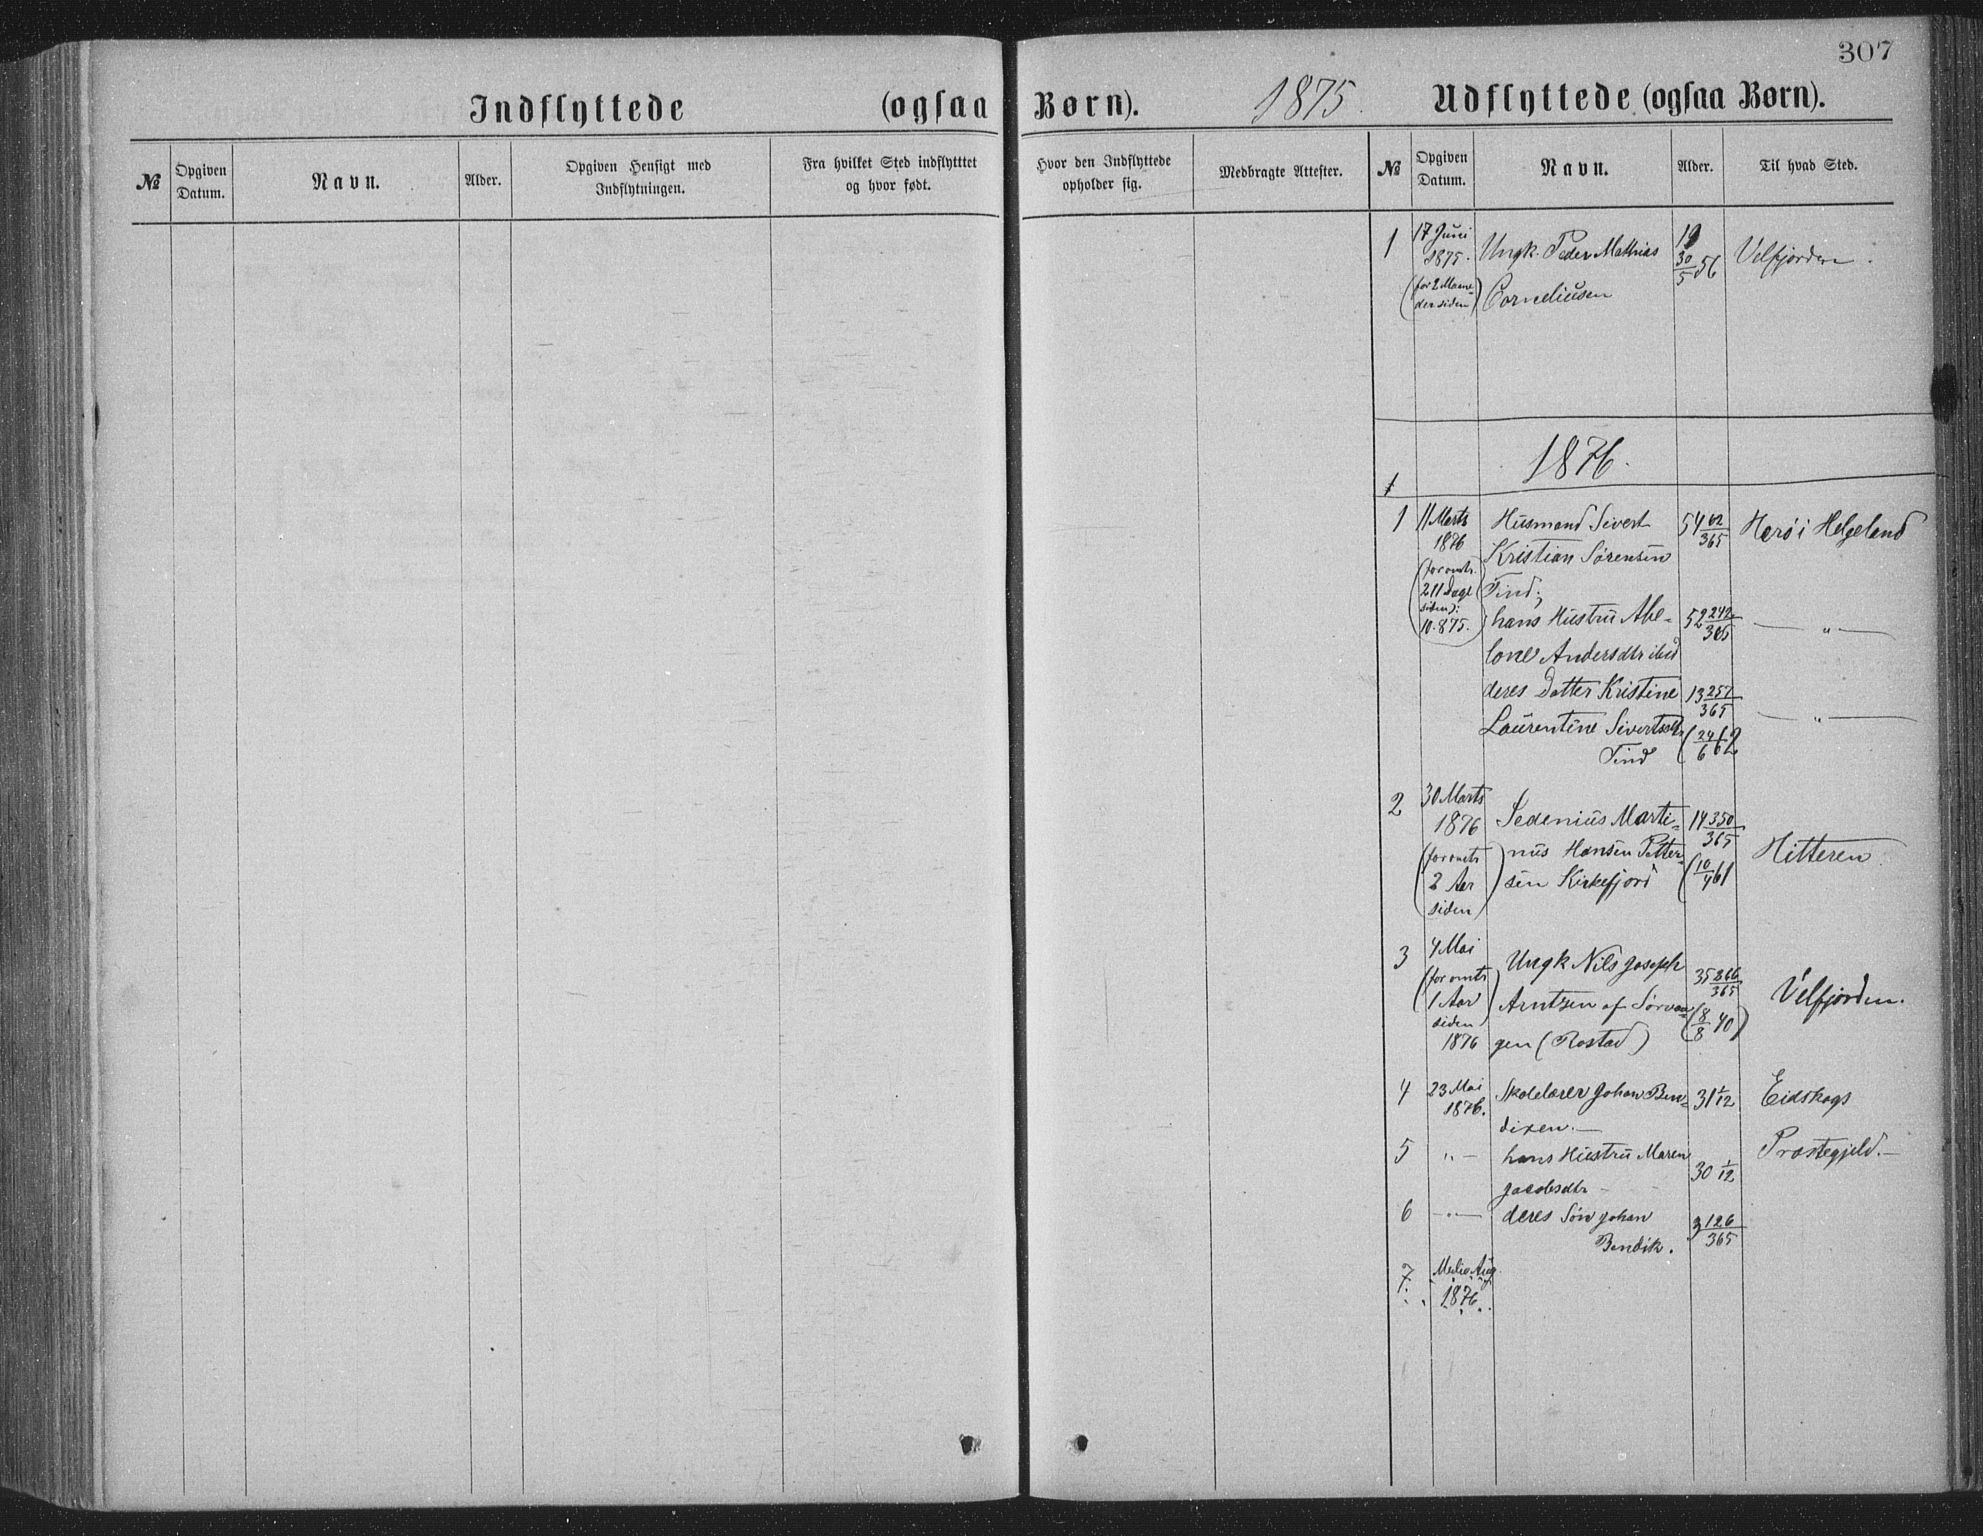 307
Indflyttede (ogsaa Børn). 1875. Udflyttede (ogsaa Børn).
№ Opgiven Datum. Navn. Alder. Opgiven Hensigt med Indflytningen. Fra hvilket Sted indflytttet og hvor født. Hvor den Indflyttede opholder sig. Medbragte Attester. № Opgiven Datum. Navn. Alder. Til hvad Sted.
1 17 Juni Ungk. Peder Mathias 19 Velfjorden.
1875. 30/5 56
(for 2 Maane-
der siden) Corneliusen
1876.
1
1 11 Marts Husmand Sivert 54 62/365 Herø i Helgeland
1876 Kristian Sørensen
(for omtr.
211 Dage Tind;
siden):
10.875. hans Hustru Abe- 52 242/365 — „ —
lone Andersdtr ibid
deres Datter Kristine 13 257/365 — „ —
Laurentine Sivertsdtr (24/6 62)
Tind
2 30 Marts Sedenius Marti- 14 350/365 Hitteren.
1876
(for omtr nus Hansen Petter-
2 Aar sen Kirkefjord (10/4 61
siden)
3 4 Mai Ungk Nils Joseph 35 266/365 Velfjorden.
(for omtr
1 Aar Arntzen af Sørvan- (8/8 40)
siden)
1876 gen (Rostad)
4 23 Mai Skolelærer Johan Ben- 31 1/12 Eidskogs
1876. dixen. —
5 „ — hans Hustru Maren 30 1/12 Præstegjeld. —
Jacobsdtr —
6 — „ — deres Søn Johan 3 126/365
Bendik.
7. Medio Aug.
1876.